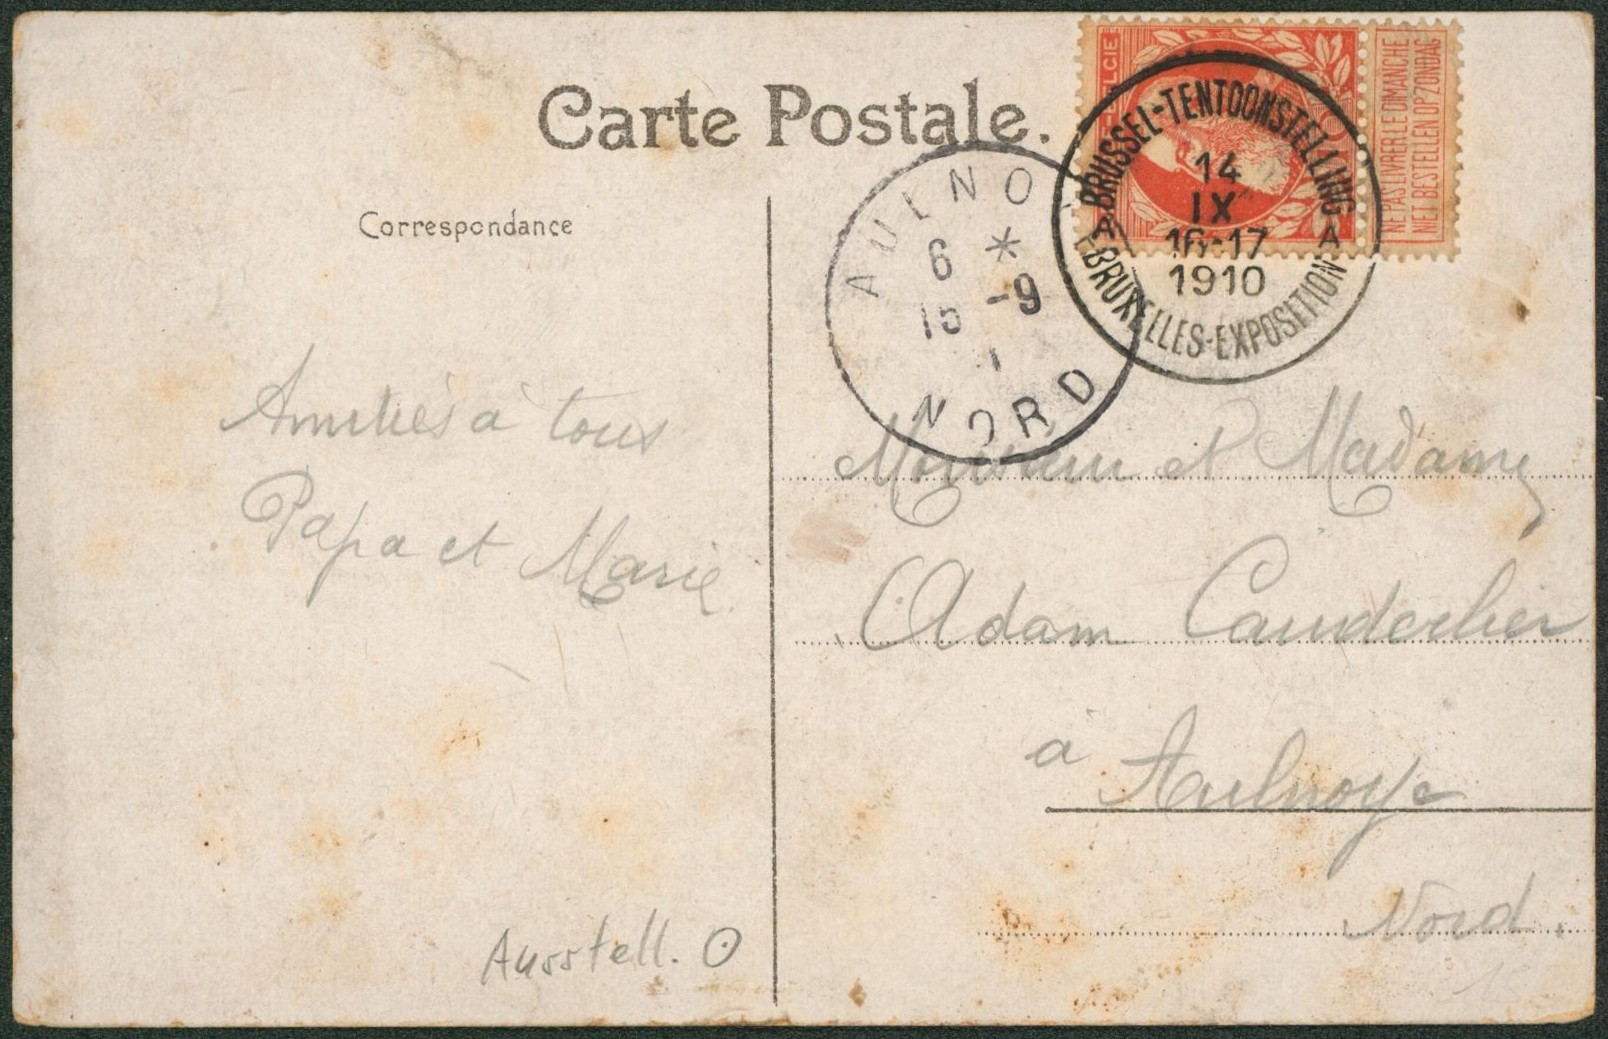 Carte Postale.
Correspondance
LGIE
NE PAS LIVRER LE DIMANCHE
NIET BESTELLEN OP ZONDAG
BRUSSEL-TENTOONSTELLING
14
IX
16-17
1910
A A
BRUXELLES-EXPOSITION
AULNO
6 *
15 -9
1
NORD
Amitiés à tous
Papa et Marie
Monsieur et Madame
Adam
à Aulnoye
Nord.
Ausstell.